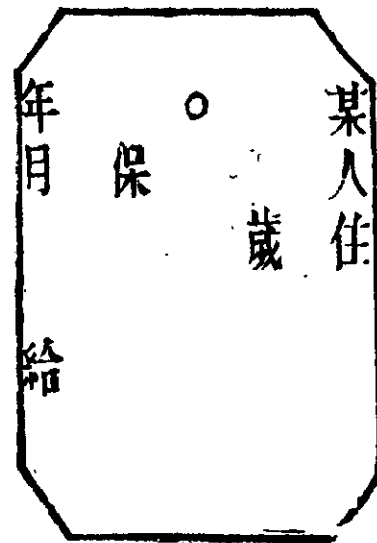 某人住
歲
保
年月 給